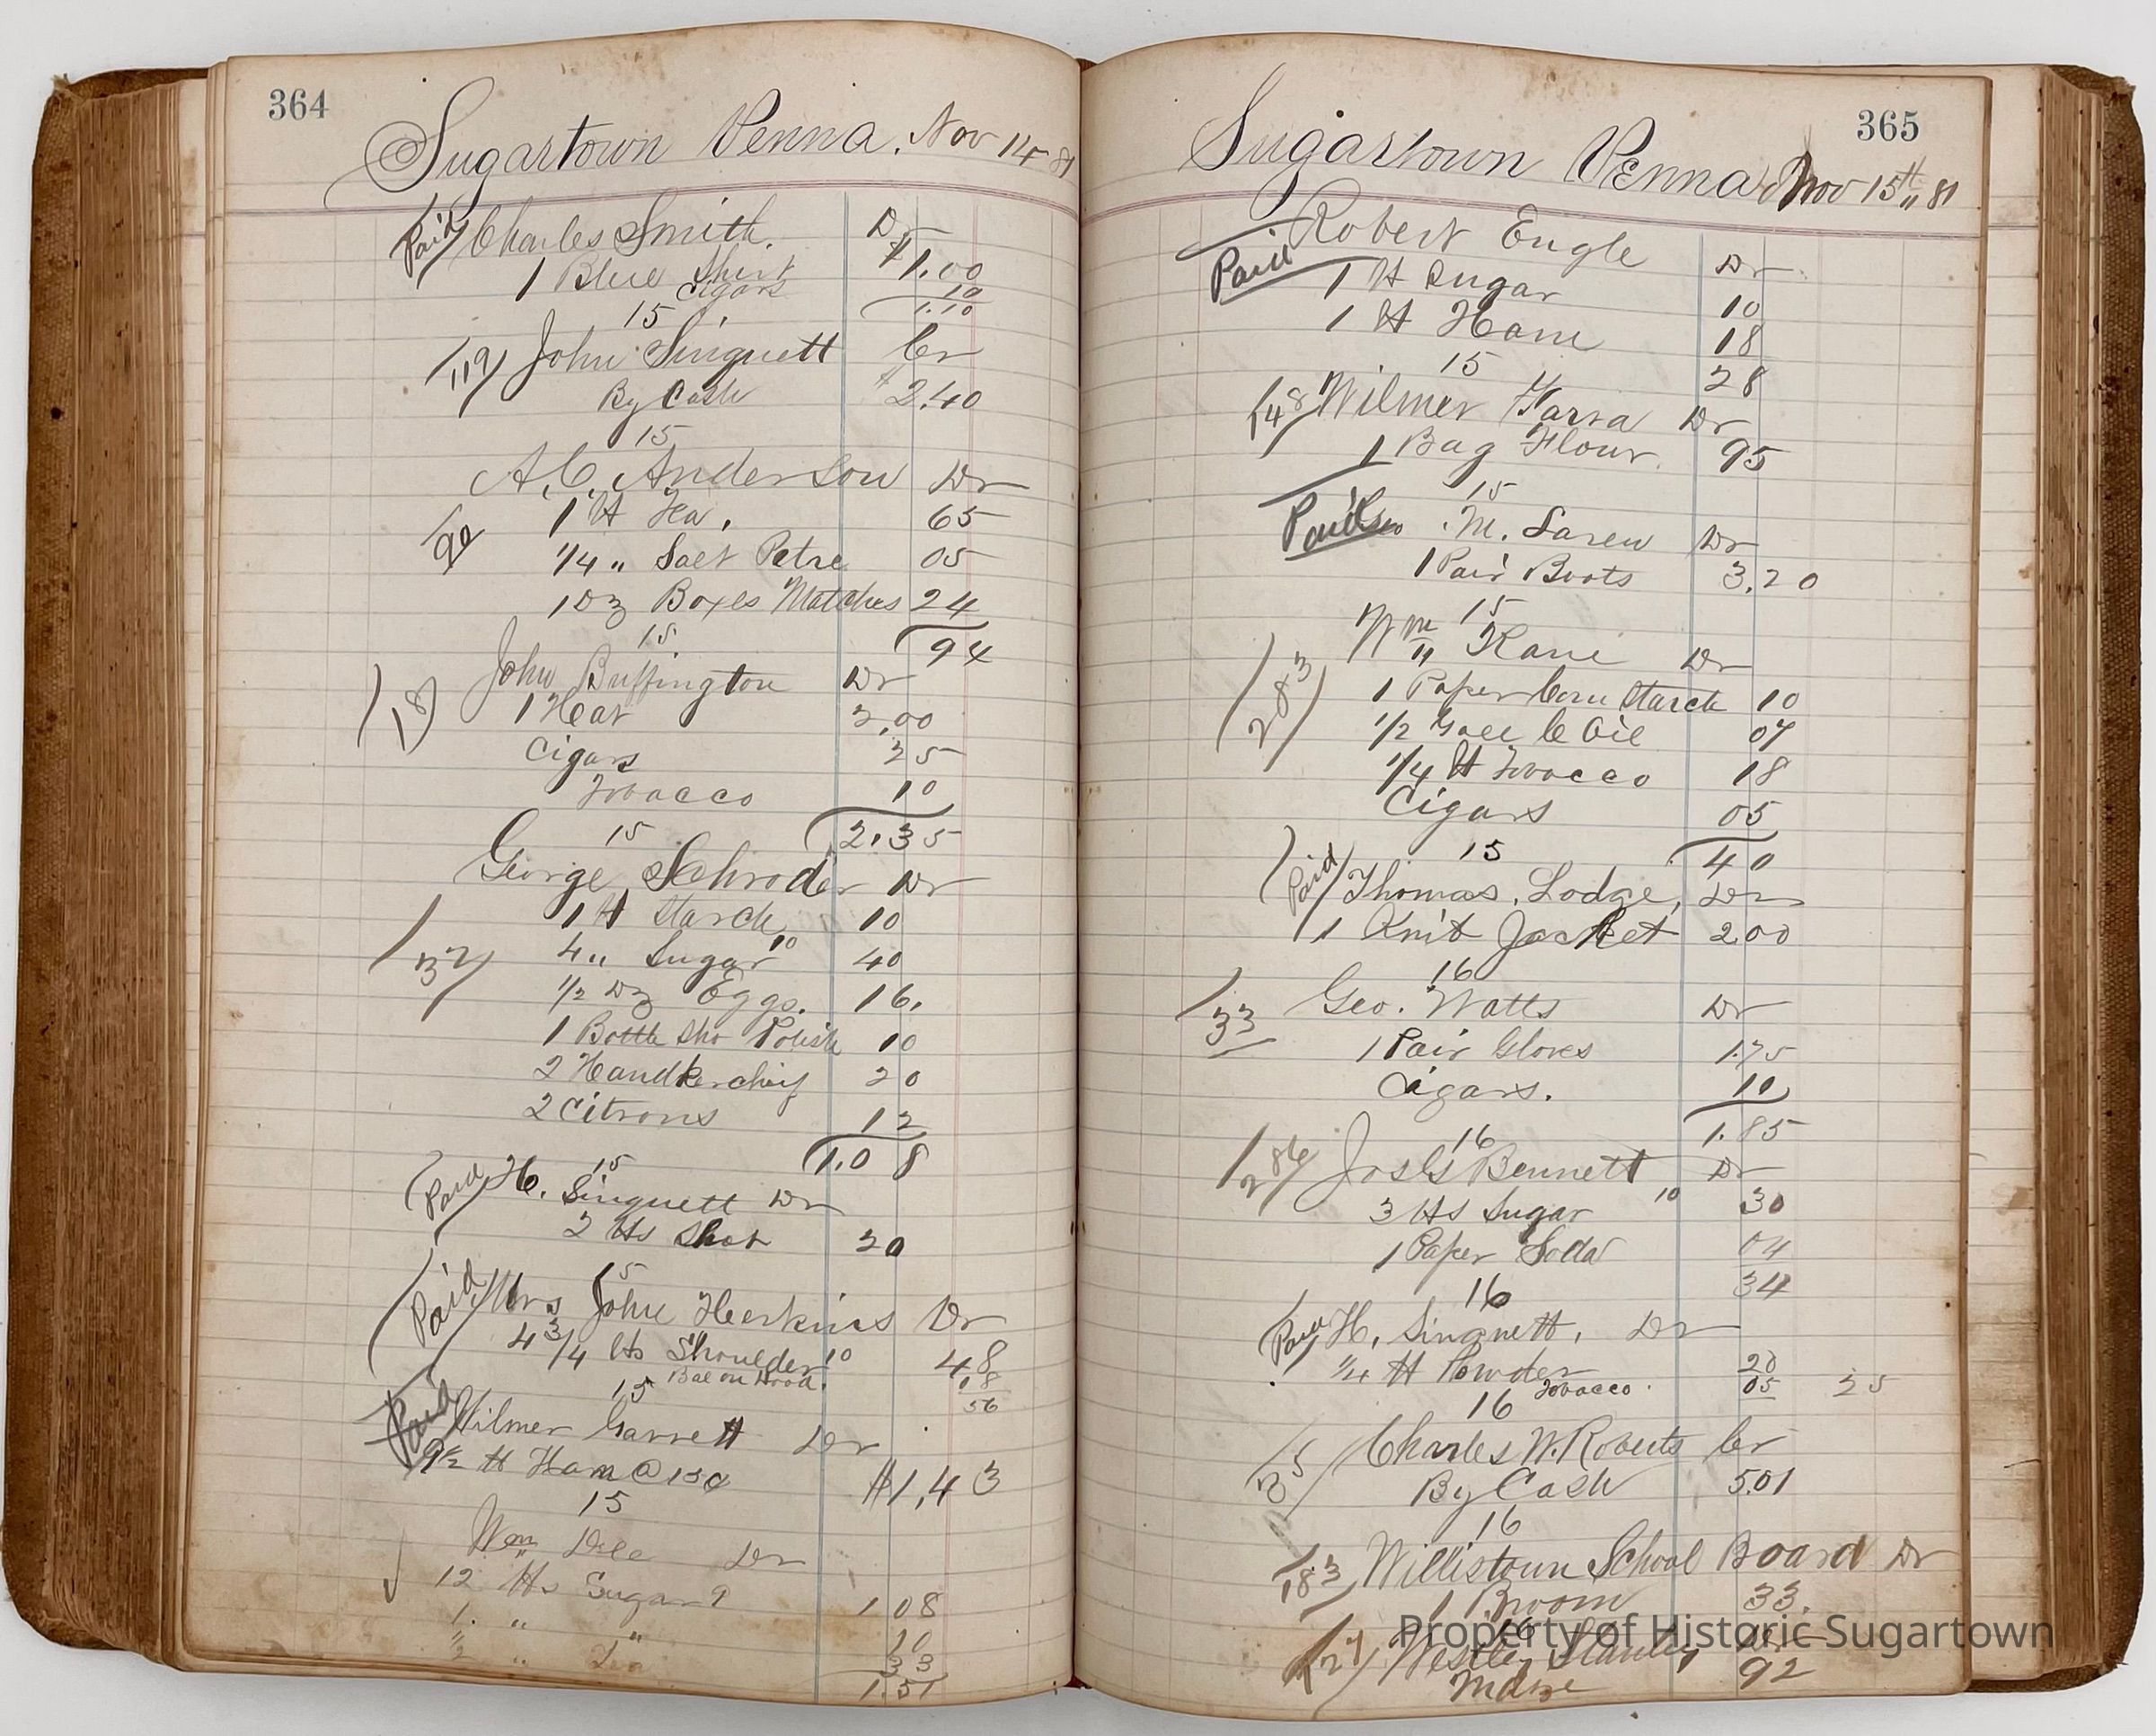 364
Sugartown Penna. Nov 14 81
Paid Charles Smith. Dr
1 Blue Shirt $1.00
Cigars 10
15 1.10
119 John Singuett Cr
By Cash $2.40
15
A. C. Anderson Dr
1 lb Tea, 65
90 1/4 " Salt Petre 05
1 Dz Boxes Matches 24
15 94
John Buffington Dr
18 1 Hat 2.00
Cigars 25
Tobacco 10
15 2.35
George Schroder Dr
1 lb Starch 10
32 4 " Sugar 10 40
1/2 Dz Eggs. 16.
1 Bottle Sho Polish 10
2 Handkerchief 20
2 Citrons 12
15 1.08
Paid H. Singuett Dr
2 lbs Shot 20
15
Paid Mrs John Heerkins Dr
4 3/4 lbs Shoulder 10 48
Bal on Hood. 08
15 56
Paid Wilmer Garrett Dr
9 1/2 lb Ham @ 15c $1,43
15
Wm Dile Dr
12 lbs Sugar 9 1 08
1. " " 10
1/2 " Tea 33
1.51
365
Sugartown Penna Nov 15th 81
Robert Engle Dr
Paid 1 lb Sugar 10
1 lb Ham 18
15 28
148 Wilmer Yarra Dr
1 Bag Flour. 95
15
Paid . M. Laren Dr
1 Pair Boots 3.20
15
Wm Kane Dr
283 1 Paper Corn Starch 10
1/2 Gall C Oil 07
1/4 lb Tobacco 18
Cigars 05
15 40
Paid Thomas. Lodge, Dr
1 Knit Jacket 200
16
33 Geo. Watts Dr
1 Pair Gloves 1.75
Cigars. 10
16 1.85
286 Jos G Bennett Dr
3 lbs Sugar 10 30
1 Paper Soda 04
16 34
Paid H. Singuett. Dr
1/4 lb Powder 20
Tobacco. 05 25
16
35 Charles W. Roberts Cr
By Cash 5.01
16
183 Willistown School Board Dr
1 Broom 33.
16
Property of Historic Sugartown
127 Westley Stanley
Mdse 92